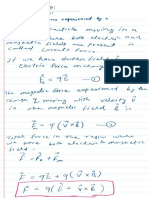 force experienced by a
particle moving in a
where both electric and
magnetic fields are present is
called Lorentz force
If we have electric field E⃗
Electric force on charge
F⃗ = qE⃗ — ①
The magnetic force experienced by the
charge q moving with velocity v⃗
in the magnetic field B⃗ is
F⃗ = q(v⃗×B⃗) — ②
Total force in the region where
we have both electric & magnetic
field:
F⃗ = Fe + Fm
F⃗ = qE⃗ + q(v⃗×B⃗)
F⃗ = q(E⃗ + (v⃗×B⃗))